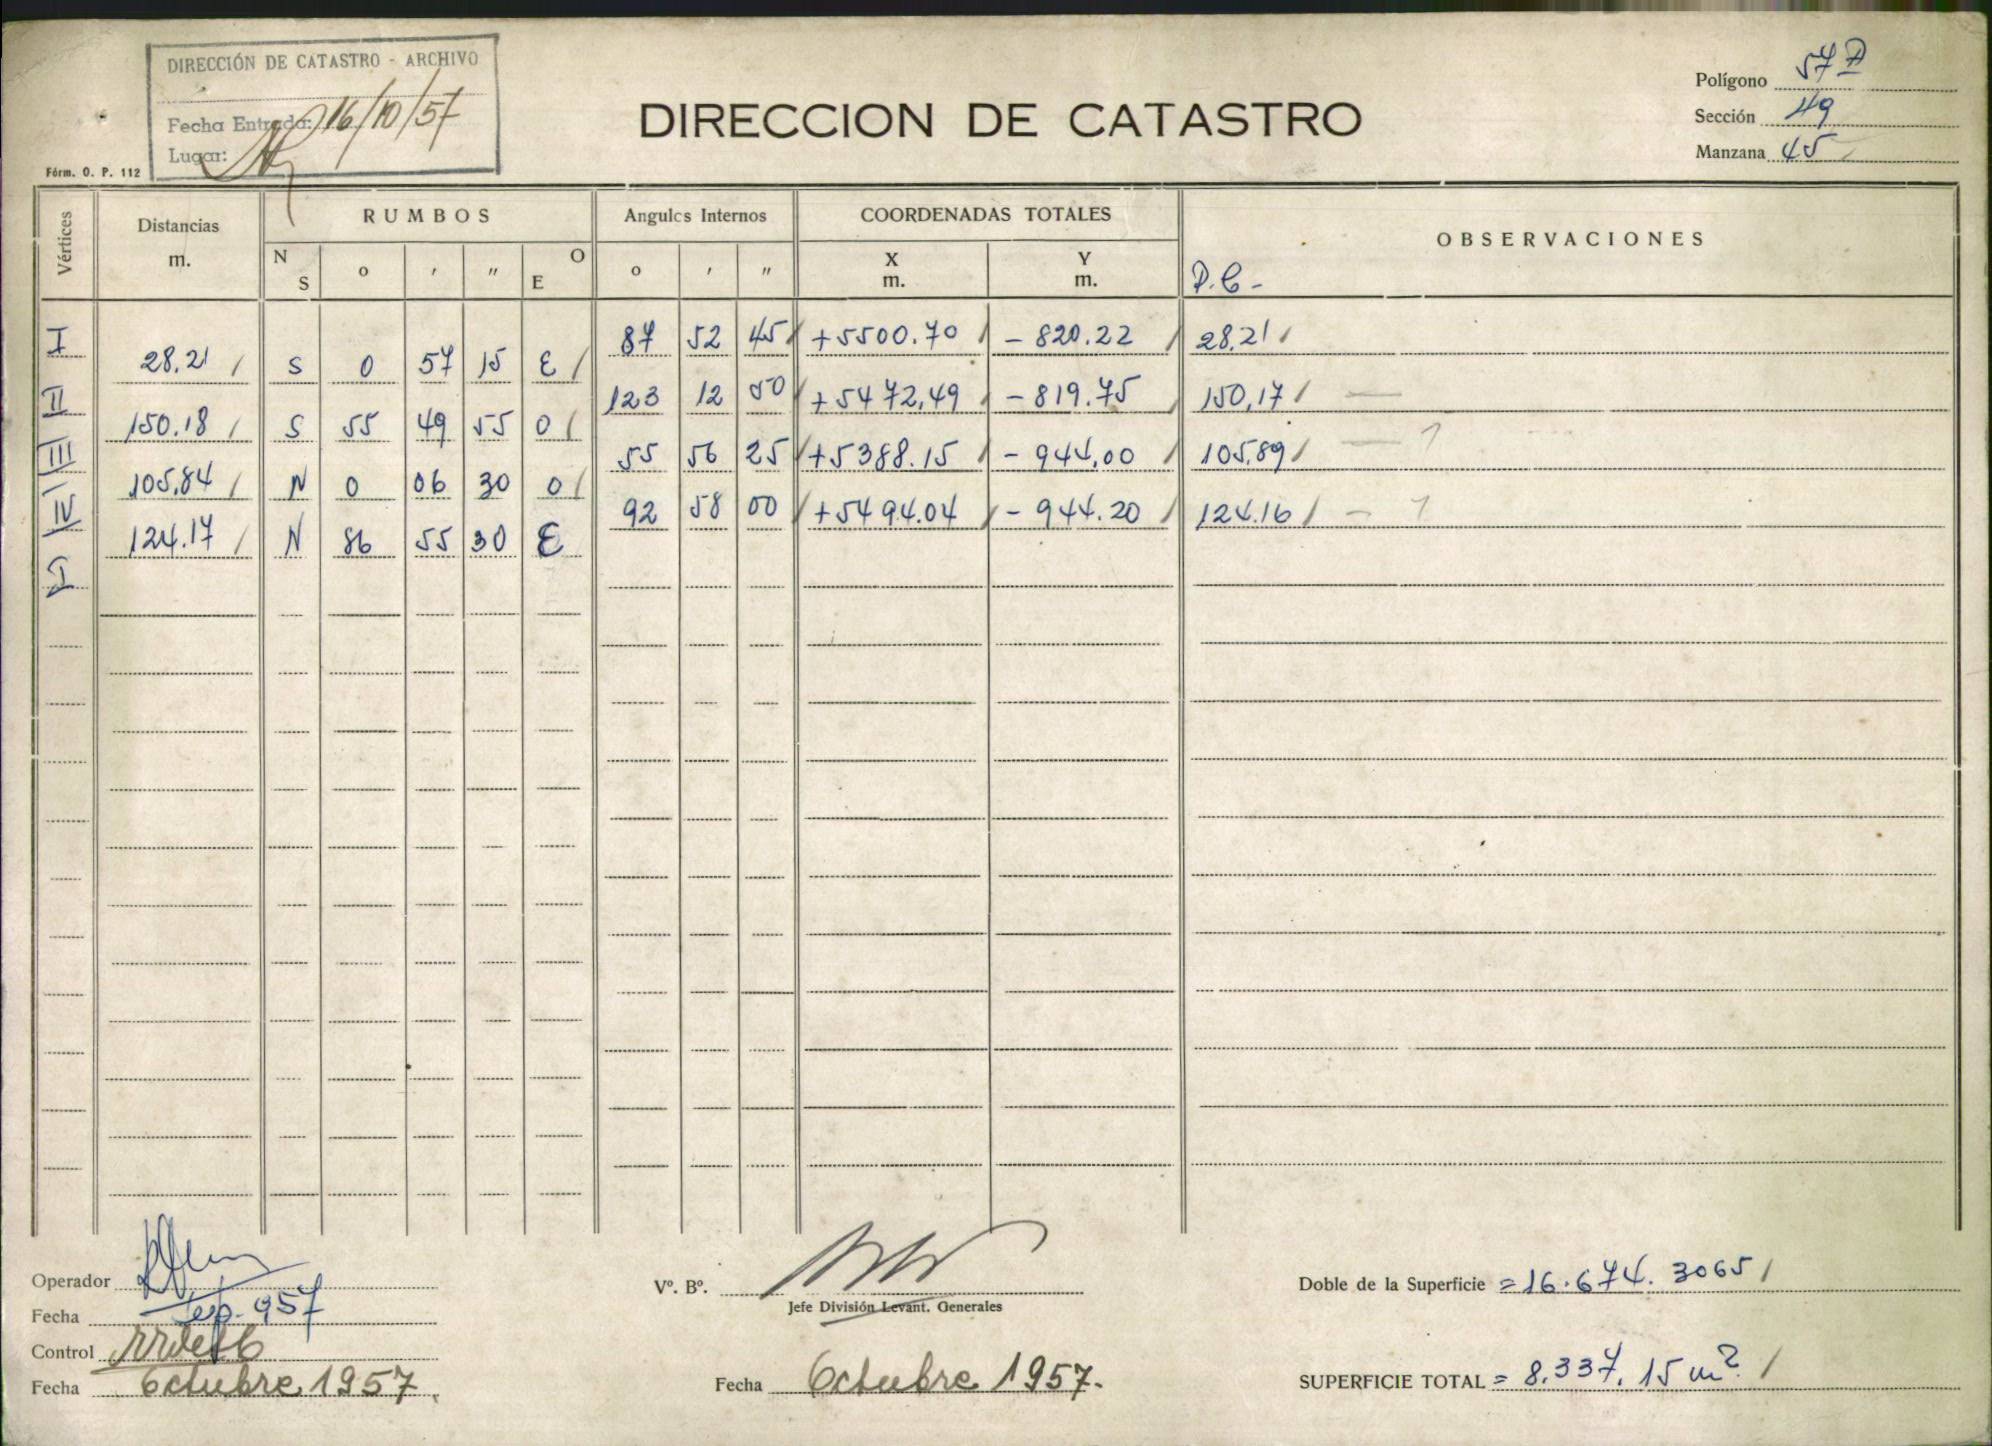 DIRECCIÓN DE CATASTRO - ARCHIVO
Fecha Entrada: 16/10/57
Lugar:
Fórm. O. P. 112
DIRECCION DE CATASTRO
Polígono 57
Sección 49
Manzana 45
Vértices Distancias m. RUMBOS Angulos Internos COORDENADAS TOTALES OBSERVACIONES
N S o ' " E O o ' " X m. Y m. P.C-
I 87 52 45 +5500.70 - 820.22 28.21
28.21 S 0 57 15 E
II 123 12 50 +5472,49 - 819.75 150,17
150.18 S 55 49 55 O
III 55 56 25 +5388.15 - 944,00 105,89
105,84 N 0 06 30 O
IV 92 58 00 +5494.04 - 944.20 124.16
124.17 N 86 55 30 E
I
Operador
Fecha Sep. 957
Control
Fecha Octubre 1957.
Vº. Bº.
Jefe División Levant. Generales
Fecha Octubre 1957.
Doble de la Superficie = 16.674.3065
SUPERFICIE TOTAL = 8.337.15 m2